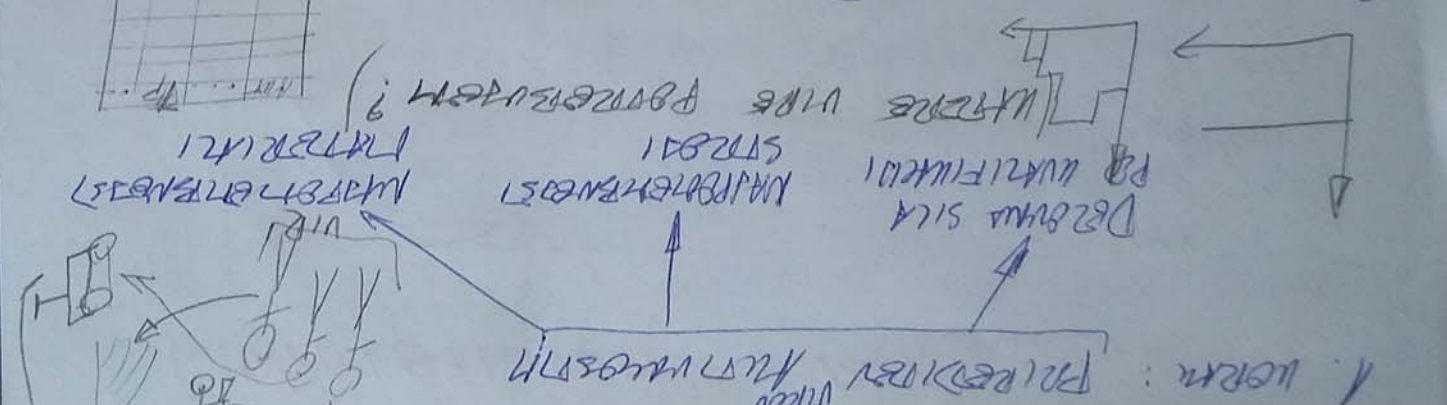 1. KORAK: PRIREDITEV VIROV AKTIVNOSTIM
DELOVNA SILA
PO KVALIFIKACIJI
NAJPOMEMBNEJŠI
STROJI
NAJPOMEMBNEJŠI
MATERIALI
VIRI
(KATERE VIRE POTREBUJEM?)